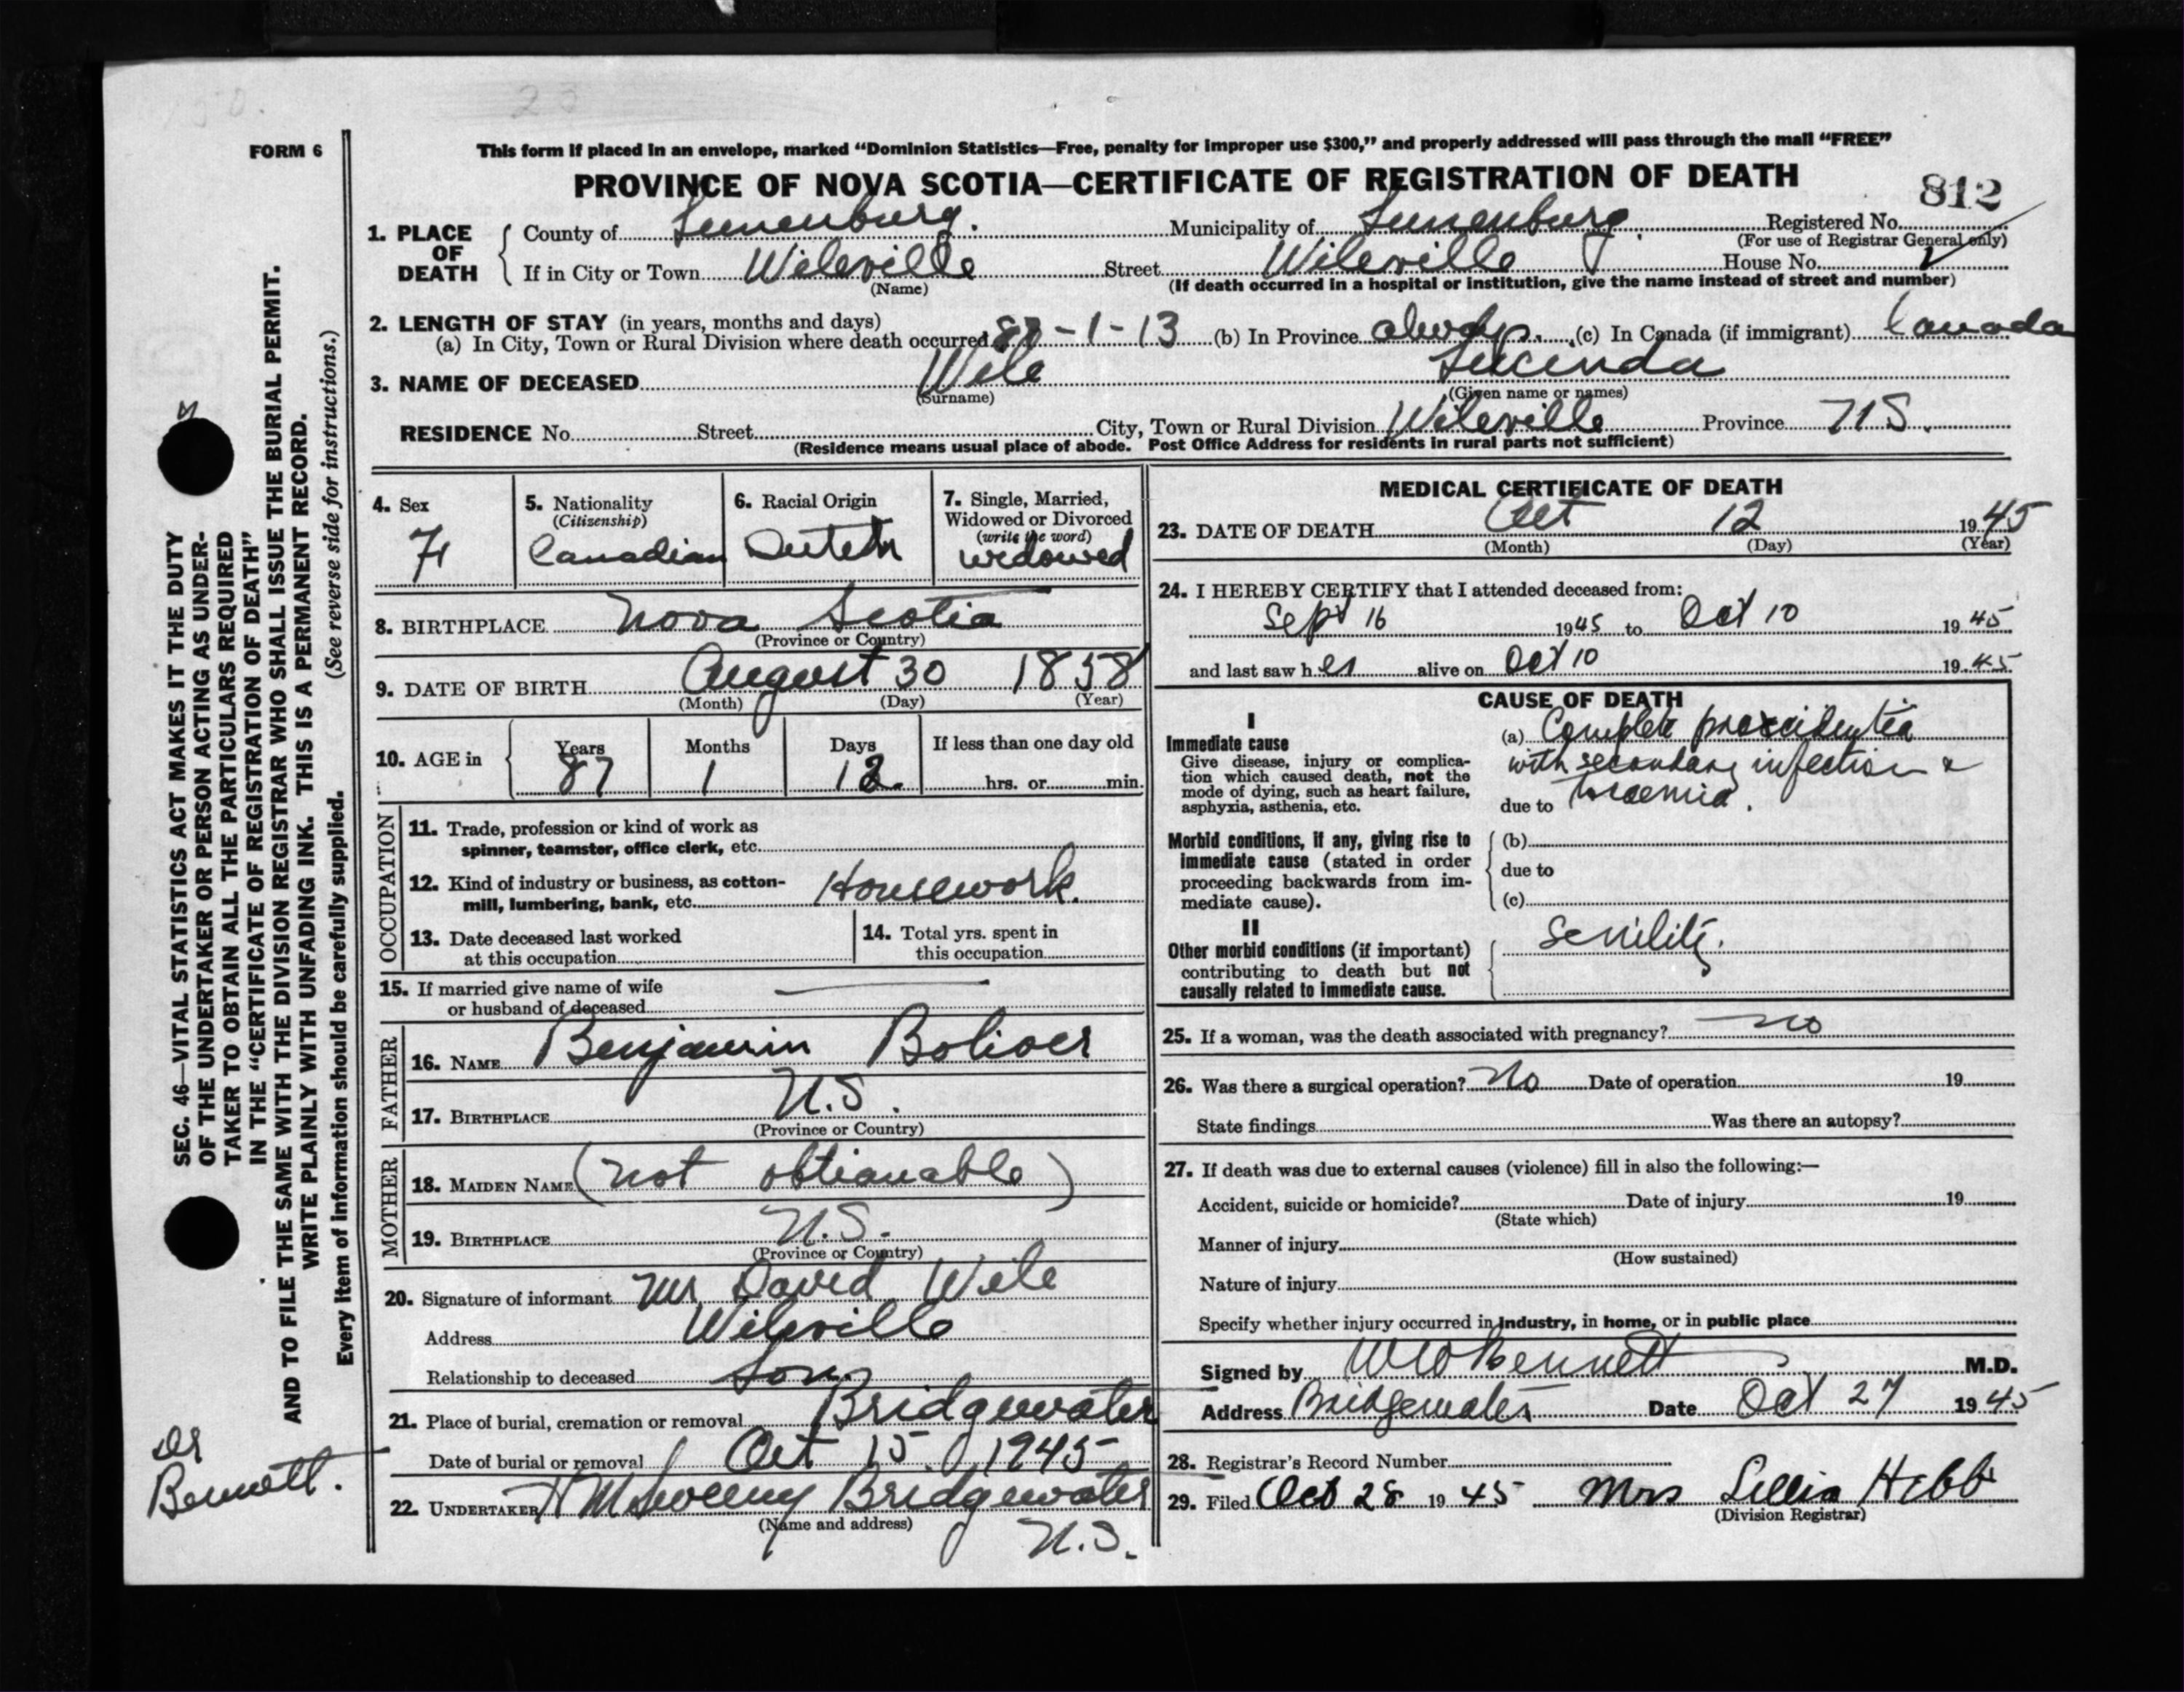 23
FORM 6
This form if placed in an envelope, marked “Dominion Statistics—Free, penalty for improper use $300,” and properly addressed will pass through the mail “FREE”
PROVINCE OF NOVA SCOTIA—CERTIFICATE OF REGISTRATION OF DEATH
812
1. PLACE OF DEATH
County of Lunenburg. Municipality of Lunenburg. Registered No.
(For use of Registrar General only)
If in City or Town Wileville Street Wileville House No.
(Name) (If death occurred in a hospital or institution, give the name instead of street and number)
2. LENGTH OF STAY (in years, months and days)
(a) In City, Town or Rural Division where death occurred 87-1-13 (b) In Province always. (c) In Canada (if immigrant) Canada
3. NAME OF DECEASED Wile Lucinda
(Surname) (Given name or names)
RESIDENCE No. Street City, Town or Rural Division Wileville Province N.S.
(Residence means usual place of abode. Post Office Address for residents in rural parts not sufficient)
4. Sex
F
5. Nationality
(Citizenship)
Canadian
6. Racial Origin
Dutch
7. Single, Married,
Widowed or Divorced
(write the word)
widowed
8. BIRTHPLACE Nova Scotia
(Province or Country)
9. DATE OF BIRTH August 30 1858
(Month) (Day) (Year)
10. AGE in Years Months Days If less than one day old
87 1 12. hrs. or min.
OCCUPATION
11. Trade, profession or kind of work as
spinner, teamster, office clerk, etc.
12. Kind of industry or business, as cotton-
mill, lumbering, bank, etc. Housework.
13. Date deceased last worked
at this occupation
14. Total yrs. spent in
this occupation
15. If married give name of wife
or husband of deceased
FATHER
16. NAME Benjamin Boliver
17. BIRTHPLACE N.S.
(Province or Country)
MOTHER
18. MAIDEN NAME (not obtianable)
19. BIRTHPLACE N.S.
(Province or Country)
20. Signature of informant Mr David Wile
Address Wileville
Relationship to deceased Son.
21. Place of burial, cremation or removal Bridgewater
Date of burial or removal Oct 15. 1945
22. UNDERTAKER H M Sweeny Bridgewater
(Name and address)
N.S.
MEDICAL CERTIFICATE OF DEATH
23. DATE OF DEATH Oct 12 1945
(Month) (Day) (Year)
24. I HEREBY CERTIFY that I attended deceased from:
Sept 16 1945 to Oct 10 1945
and last saw her alive on Oct 10 1945
CAUSE OF DEATH
I
Immediate cause
Give disease, injury or complica-
tion which caused death, not the
mode of dying, such as heart failure,
asphyxia, asthenia, etc.
(a) Complete procidentia
with secondary infection &
due to
Morbid conditions, if any, giving rise to
immediate cause (stated in order
proceeding backwards from im-
mediate cause).
(b)
due to
(c)
II
Other morbid conditions (if important)
contributing to death but not
causally related to immediate cause.
Senility.
25. If a woman, was the death associated with pregnancy? no
26. Was there a surgical operation? No Date of operation 19
State findings Was there an autopsy?
27. If death was due to external causes (violence) fill in also the following:—
Accident, suicide or homicide? Date of injury 19
(State which)
Manner of injury
(How sustained)
Nature of injury
Specify whether injury occurred in industry, in home, or in public place
Signed by W W Bennett M.D.
Address Bridgewater Date Oct 27 1945
28. Registrar's Record Number
29. Filed Oct 28 1945 Mrs Lillia Hebb
(Division Registrar)
SEC. 46—VITAL STATISTICS ACT MAKES IT THE DUTY
OF THE UNDERTAKER OR PERSON ACTING AS UNDER-
TAKER TO OBTAIN ALL THE PARTICULARS REQUIRED
IN THE “CERTIFICATE OF REGISTRATION OF DEATH”
AND TO FILE THE SAME WITH THE DIVISION REGISTRAR WHO SHALL ISSUE THE BURIAL PERMIT.
WRITE PLAINLY WITH UNFADING INK. THIS IS A PERMANENT RECORD.
(See reverse side for instructions.)
Every item of information should be carefully supplied.
Dr
Bennett.